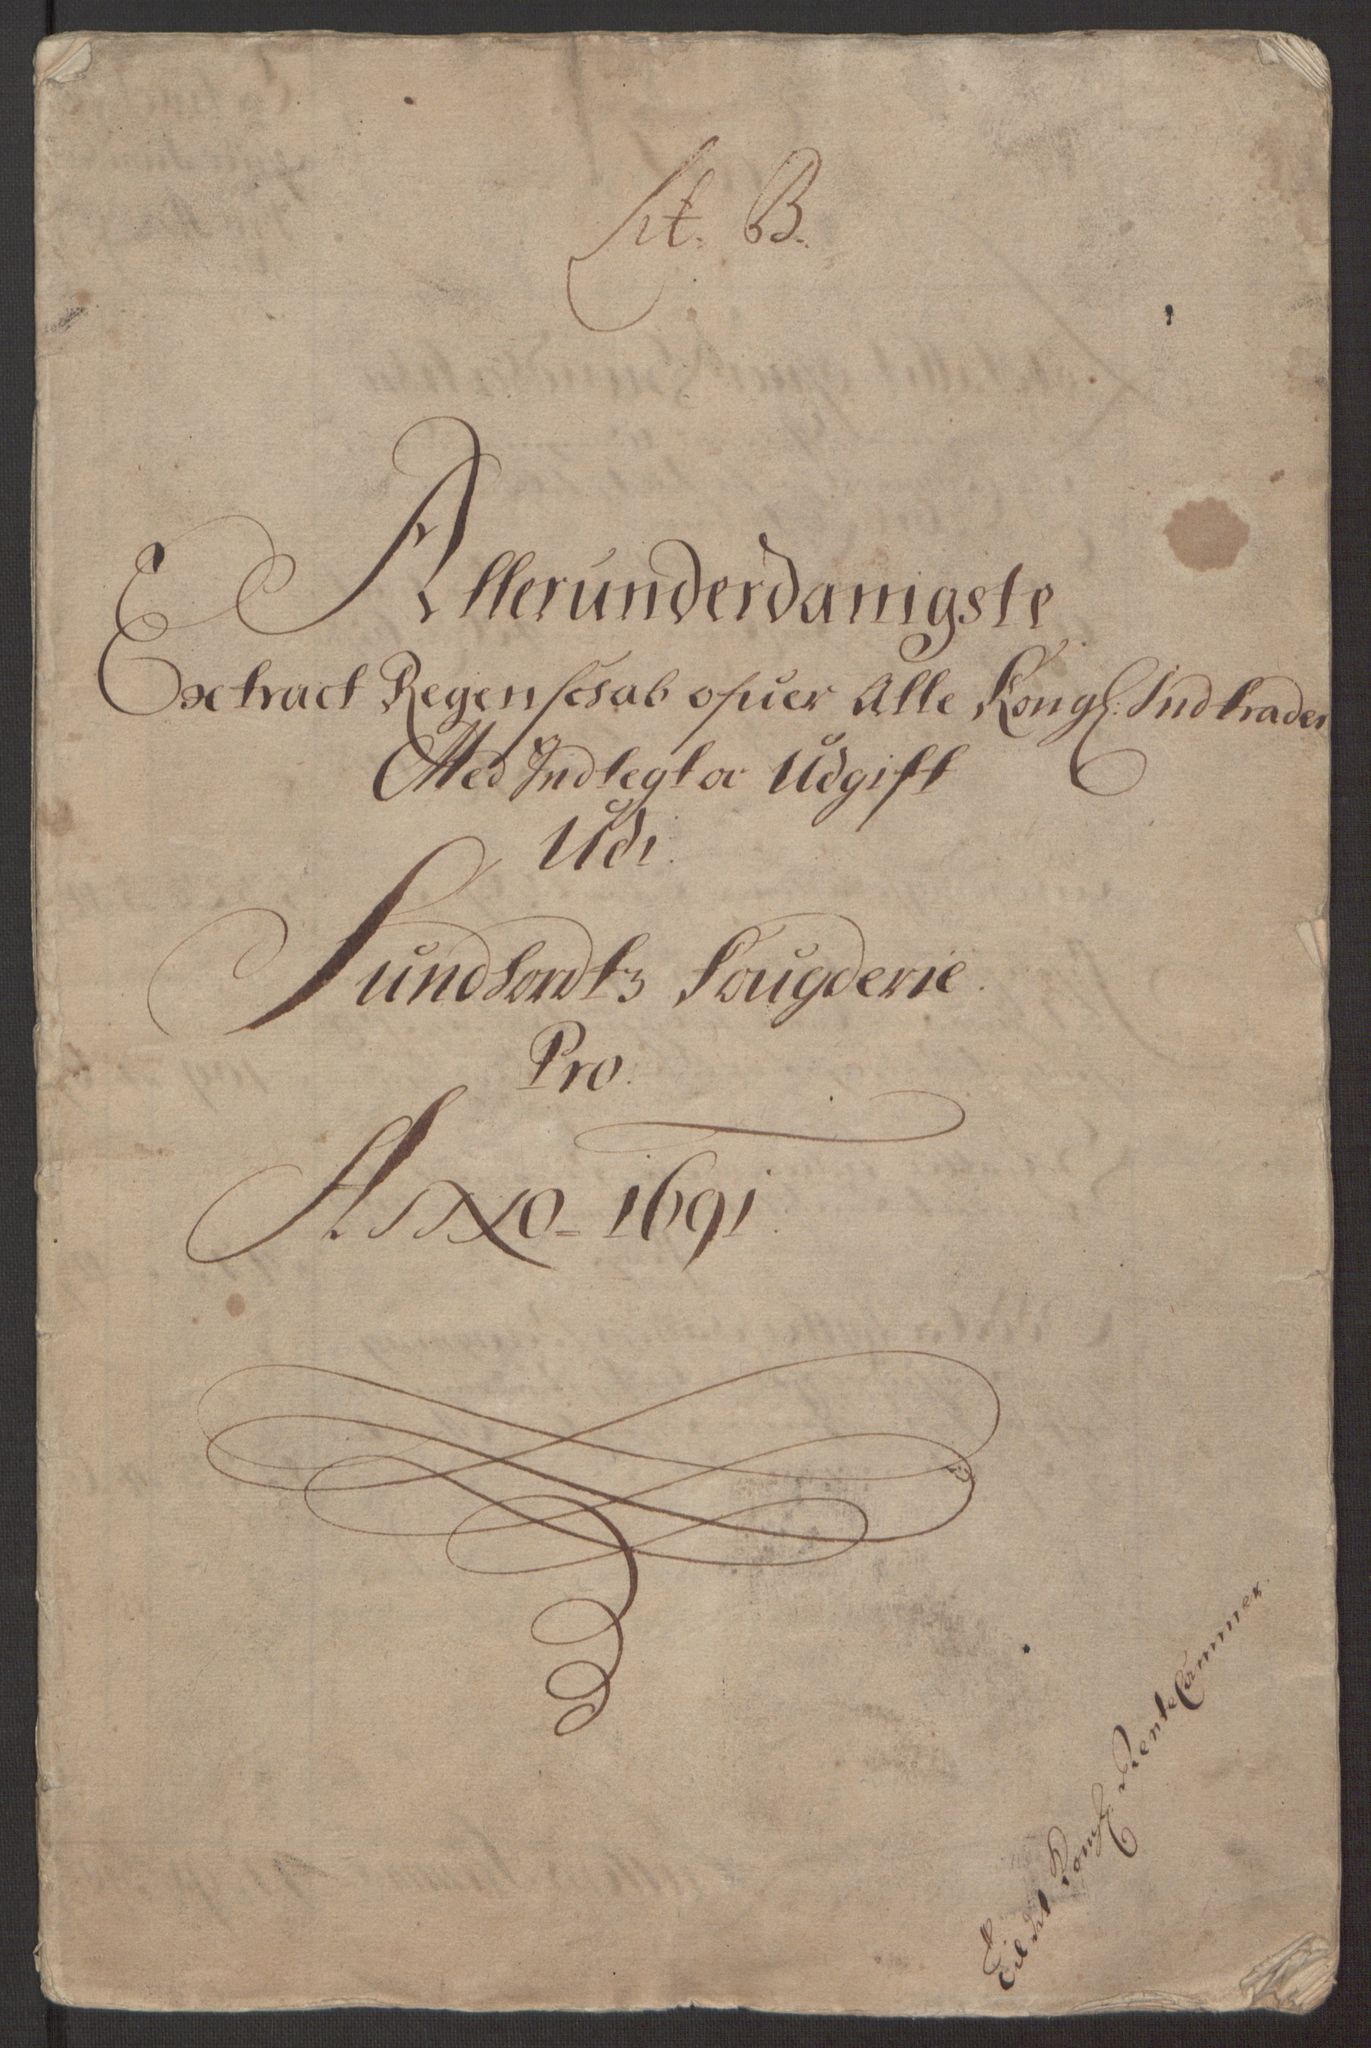 Lit. B.
Allerunderdanigste
Extract Regenschab ofuer Alle Kongl: Indtrader
Med Indlegt oc Udgift
Udi
Sundhordts Fougderie.
Pro.
Anno 1691.
Til det Kongl: Rente Cammer.